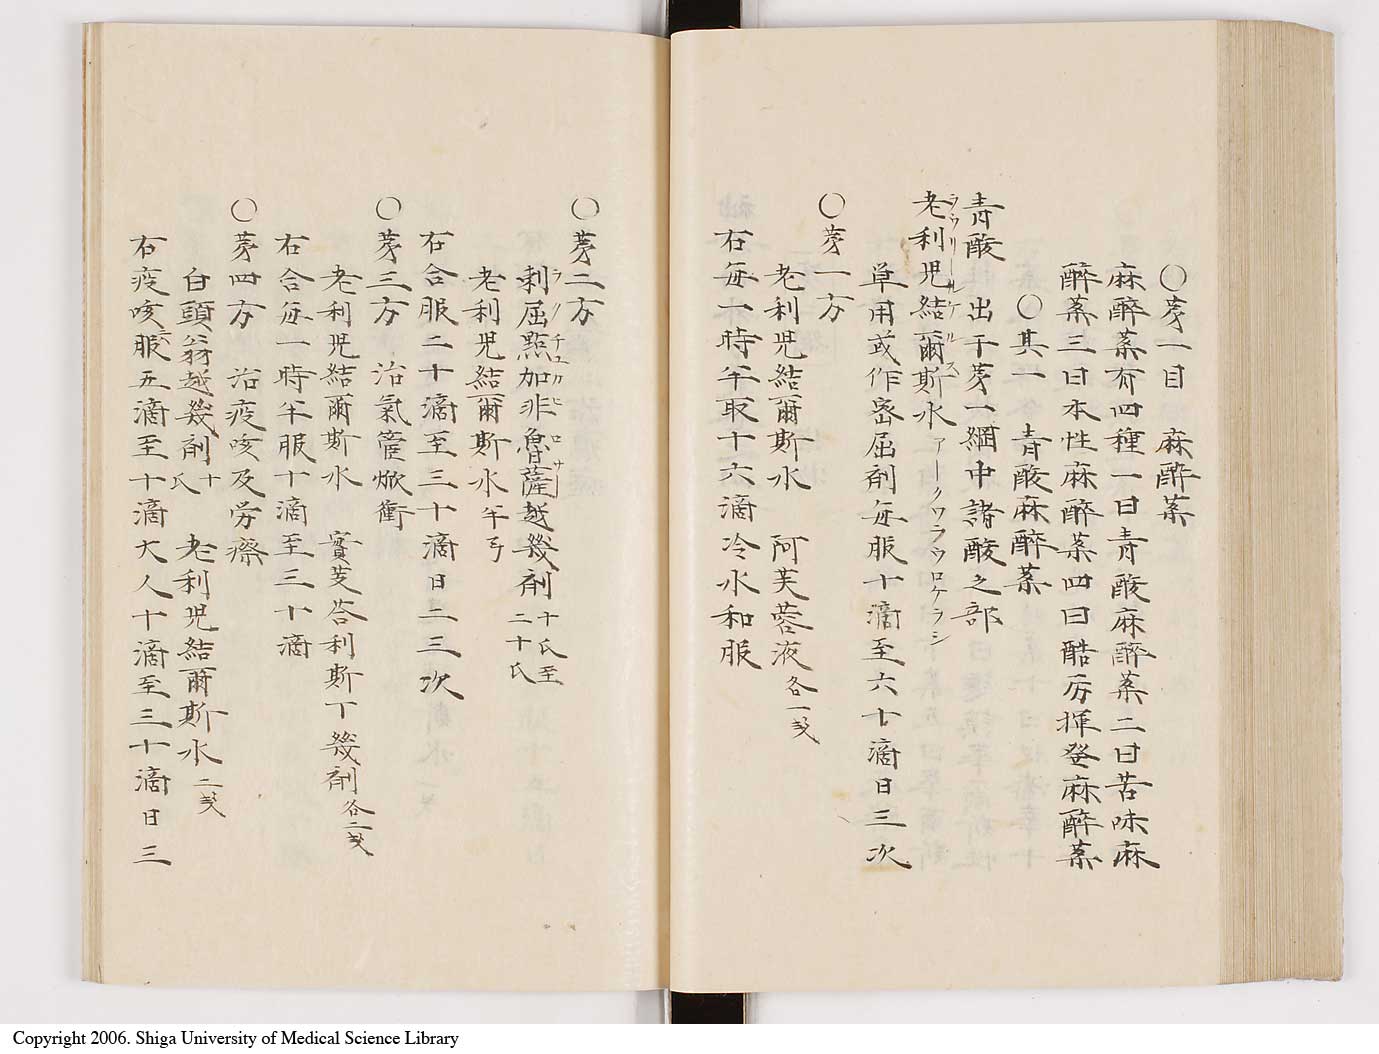 ○第一目 麻醉薬
麻醉薬有四種一曰青酸麻醉薬二曰苦味麻
醉薬三曰本性麻醉薬四曰酷厉揮発麻醉薬
○其一 青酸麻醉薬
青酸 出于第一綱中諸酸之部
老利児結爾斯水 アークワラウロケラシ
ラウリールケルス
草用或作密屈剤毎服十滴至六十滴日三次
○第一方
老利児結爾斯水 阿芙蓉液 各一戔
右毎一時半取十六滴冷水和服
○第二方
剌屈點加非魯薩越幾剤 十氏至二十氏
老利児結爾斯水 半弓
右合服二十滴至三十滴日二三次
○第三方 治氣管焮衝
老利児結爾斯水 實芰荅利斯丁幾剤 各二戔
右合毎一時半服十滴至三十滴
○第四方 治疫咳及労瘵
白頭翁越幾剤 十氏 老利児結爾斯水 二戔
右疫咳服五滴至十滴大人十滴至三十滴日三